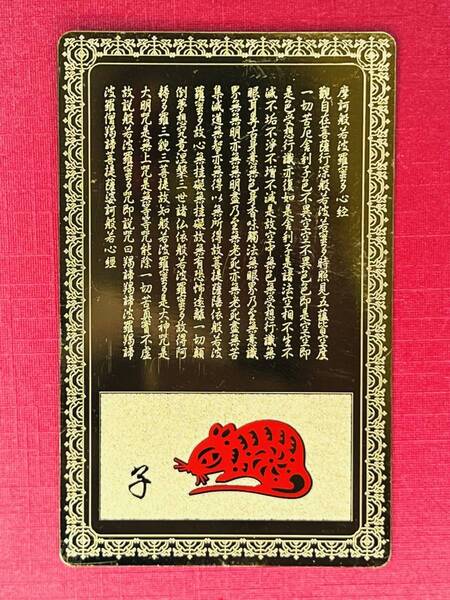 摩訶般若波羅蜜多心經
觀自在菩薩行深般若波若蜜多時照見五蘊皆空度
一切苦厄舍利子色不異空空不異色色即是空空即
是色受想行識亦復如是舍利子是諸法空相不生不
滅不垢不淨不增不減是故空中無色無受想行識無
眼耳鼻舌身意無色身香味觸法無眼界乃至無意識
界無無明亦無無明盡乃至無老死亦無老死盡無苦
集滅道無智亦無得以無所得故菩提薩陲依般若波
羅蜜多故心無挂礙無挂礙故無有恐怖遠離一切顛
倒夢想究竟涅槃三世諸佛依般若波羅蜜多故得阿
耨多羅三藐三菩提故知般若波羅蜜多是大神咒是
大明咒是無上咒是無等等咒能除一切苦真實不虛
故說般若波羅蜜多咒即說咒曰羯諦羯諦波羅羯諦
波羅僧羯諦菩提薩婆訶般若心經
子